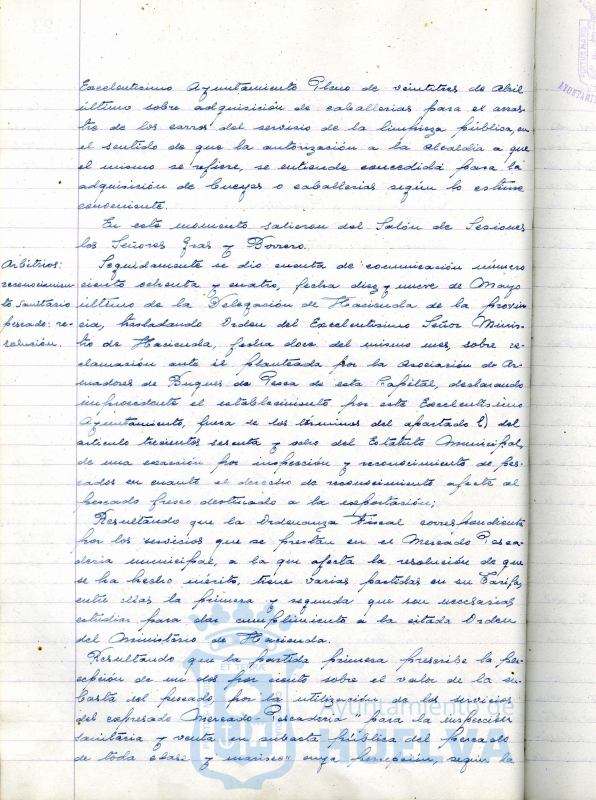 Excelentísimo Ayuntamiento Pleno de veintitres de Abril
último sobre adquisición de caballerias para el arras-
tre de los carros del servicio de la limpieza pública, en
el sentido de que la autorización a la Alcaldia a que
el mismo se refiere, se entienda concedida para la
adquisición de bueyes o caballerias según lo estime
conveniente.
En este momento salieron del Salón de Sesiones
los Señores Gras y Borrero.
Arbitrios:
reconocimien-
to sanitario
pescado: re-
solución.
Seguidamente se dio cuenta de comunicación número
ciento ochenta y cuatro, fecha diez y nueve de Mayo
último de la Delegación de Hacienda de la provin-
cia, trasladando Orden del Excelentísimo Señor Minis-
tro de Hacienda, fecha doce del mismo mes, sobre re-
clamación ante él planteada por la Asociación de Ar-
madores de Buques de Pesca de esta Capital, declarando
improcedente el establecimiento por este Excelentísimo
Ayuntamiento, fuera de los términos del apartado l) del
articulo trescientos sesenta y ocho del Estatuto Municipal,
de una exacción por inspección y reconocimiento de pes-
cados en cuanto el derecho de reconocimiento afecte al
pescado fresco destinado a la exportación;
Resultando que la Ordenanza Fiscal correspondiente
por los servicios que se prestan en el Mercado Pesca-
deria municipal, a la que afecta la resolución de que
se ha hecho mérito, tiene varias partidas en su Tarifa,
entre ellas la primera y segunda que son necesarias
estudiar para dar cumplimiento a la citada Orden
del Ministerio de Hacienda.
Resultando que la partida primera prescribe la per-
cepción de un dos por ciento sobre el valor de la su-
basta del pescado, por la utilización de los servicios
del expresado Mercado-Pescaderia "para la inspección
sanitaria y venta en subasta pública del pescado
de toda clase y marisco" cuya percepción, según la
Ayuntamiento de
HUELVA